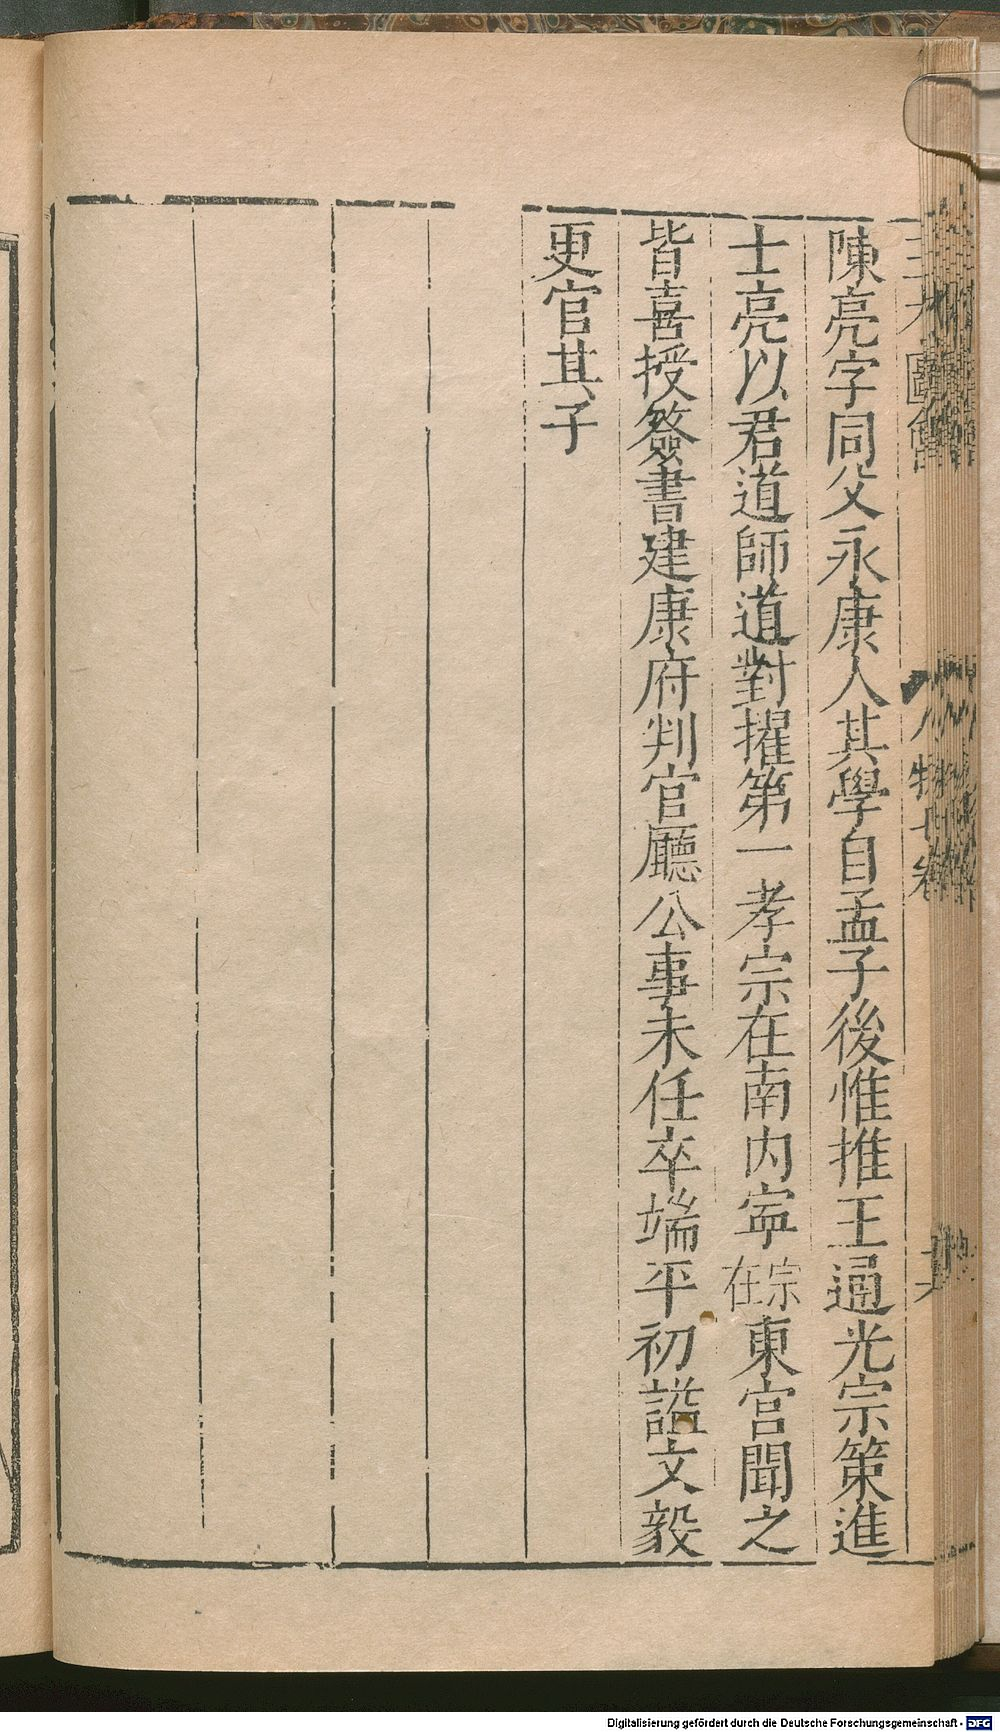 陳亮字同父永康人其學自孟子後惟推王通光宗策進
士亮以君道師道對擢第一孝宗在南内寍宗在東宫聞之
皆喜授簽書建康府判官廳公事未任卒端平初謚文毅
更官其子
三才圖會
人物七卷
Digitalisierung gefördert durch die Deutsche Forschungsgemeinschaft - DFG